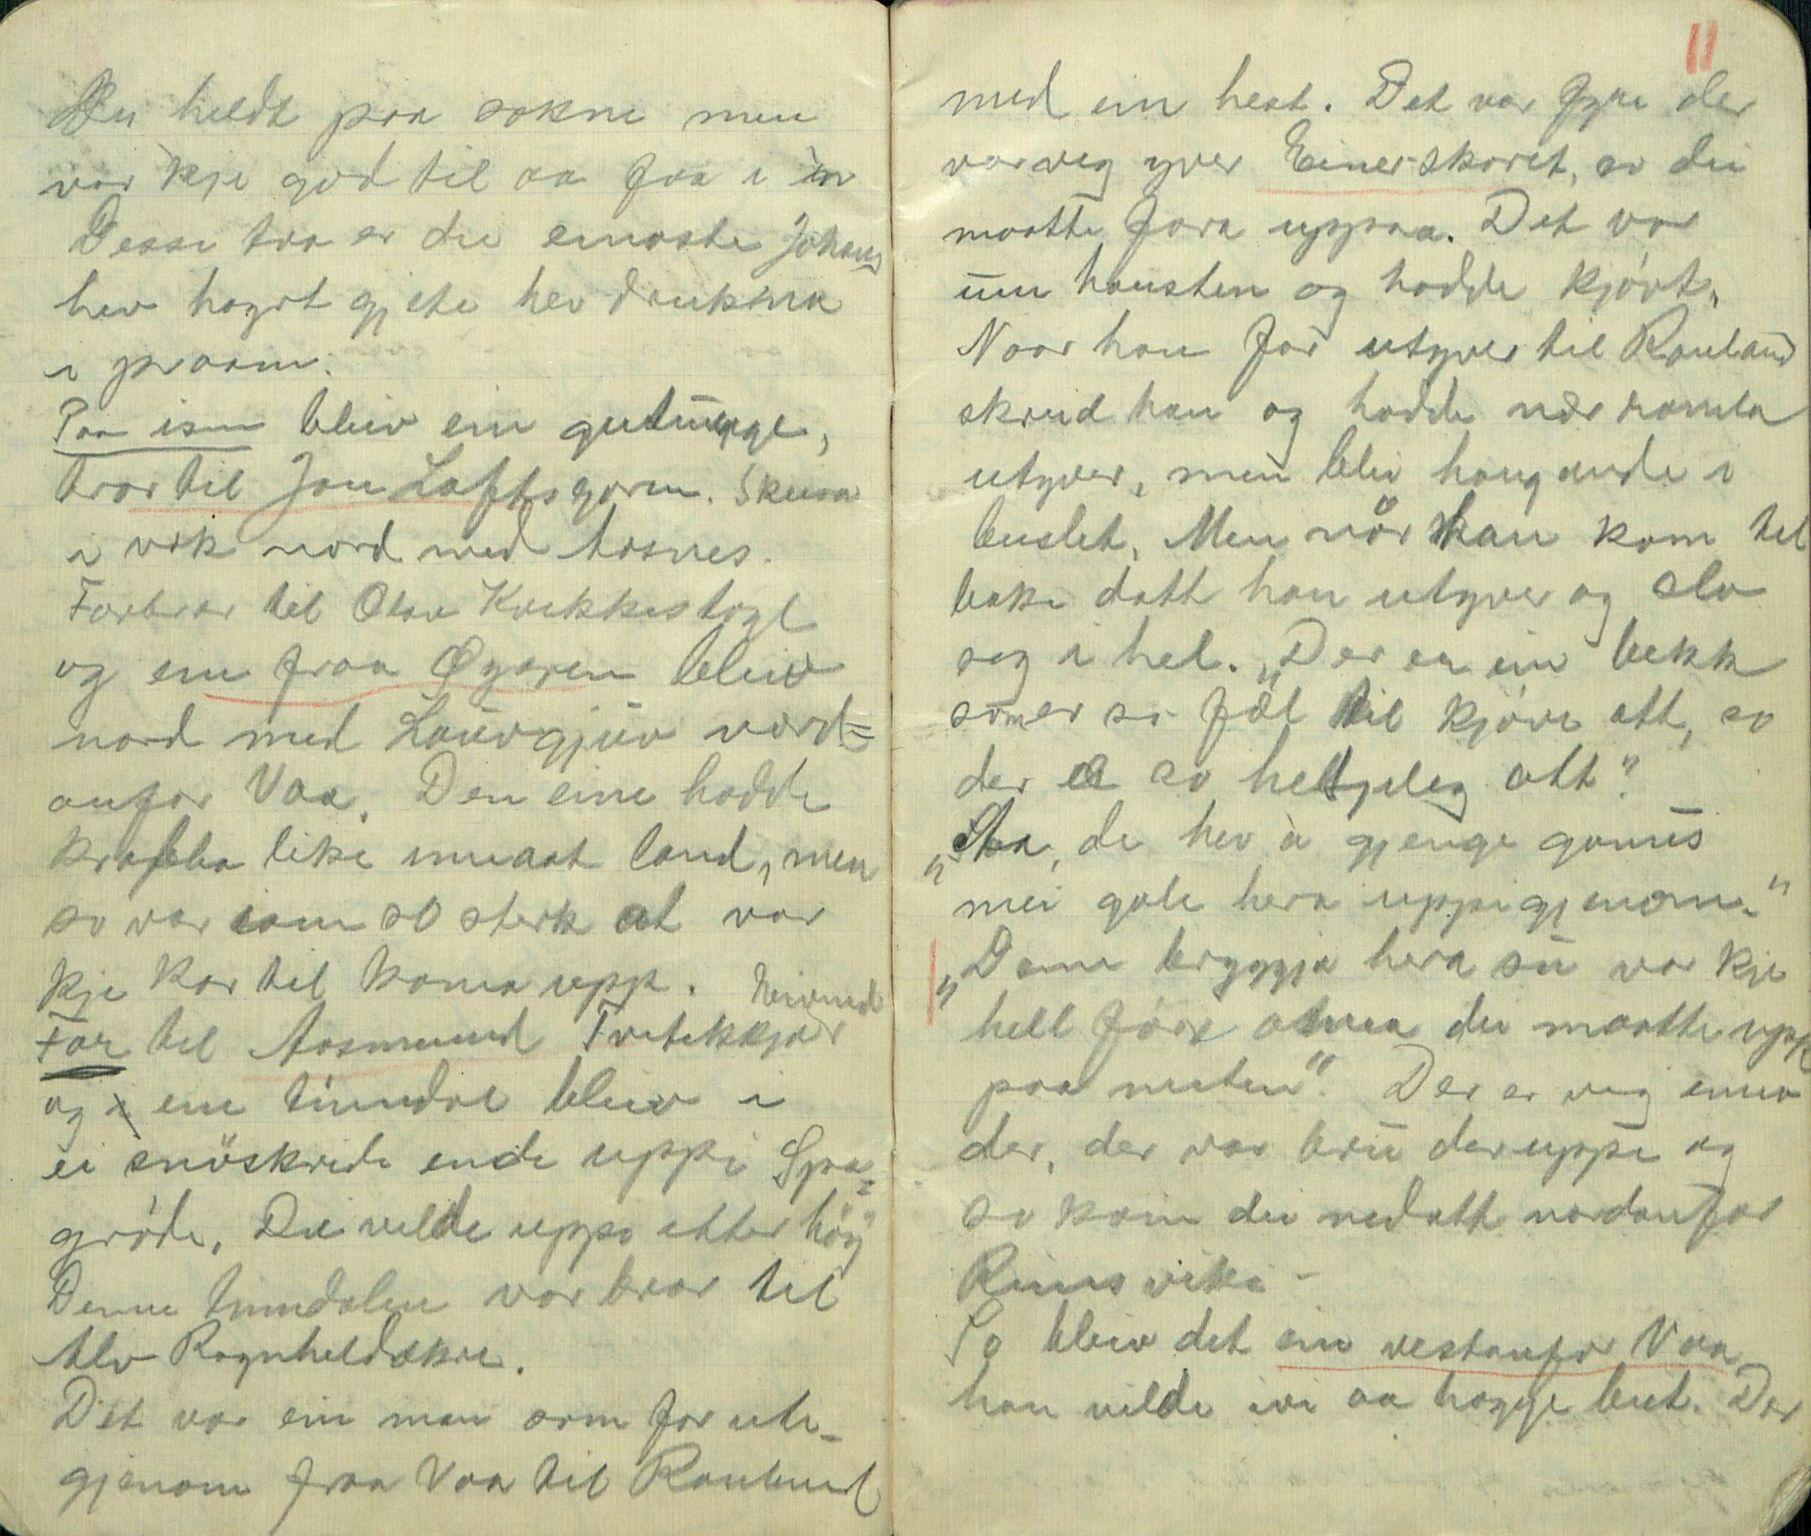 Dei heldt paa sokne men
var kje god til aa faa i 'n
Desse tva er dei einaste Johans
hev høyrt gjete hev drukna
i praam.
Paa isen bleiv ein gutunge,
bror til Jon Loftsgarn. Skeisa
i vok nord med Aasnes.
Farbror til Olav Kvikkestoyl
og ein fraa Øygaren bleiv
nord med Lauvgjuv nord=
anfor Vaa. Den eine hadde
krabba like innaat land, men
so var isen so sterk at var
kje kar til koma upp.
Eivind
Far til Aasmund Tvitekkjar
og ein tinndøl bleiv i
ei snöskride ende uppi Spa=
gröde. Dei vilde uppo etter höy
Denne tinndølen var bror til
Alv Ragnheldsekre.
Det var ein man som for ute-
gjenom fraa Vaa til Rauland
11
med ein hest. Det var fyre der
var veg yver Einerskaret, so dei
maatte fara uppaa. Det var
um hausten og hadde kjövt.
Naar han for utyver til Rauland
skreid han og hadde nær ramla
utyver, men blei hangande i
beislet. Men når han kom til
bake datt han utyver og slo
seg i hel. "Der er ein bekk
som er so fæl til kjöve att, so
der æ so helsjeleg att".
"Aa, de hev à gjenge gamis
mei gale hera uppigjenom."
"Denne bryggja hera su var kje
hell före atmea dei maatte upp
paa nuten". Der er veg ennv
der, der var bru der uppe og
so kom dei nedatt nordanfor
Rumsvike -
So bleiv det ein vestanfor Vaa
han vilde ivi aa hogge but. Der